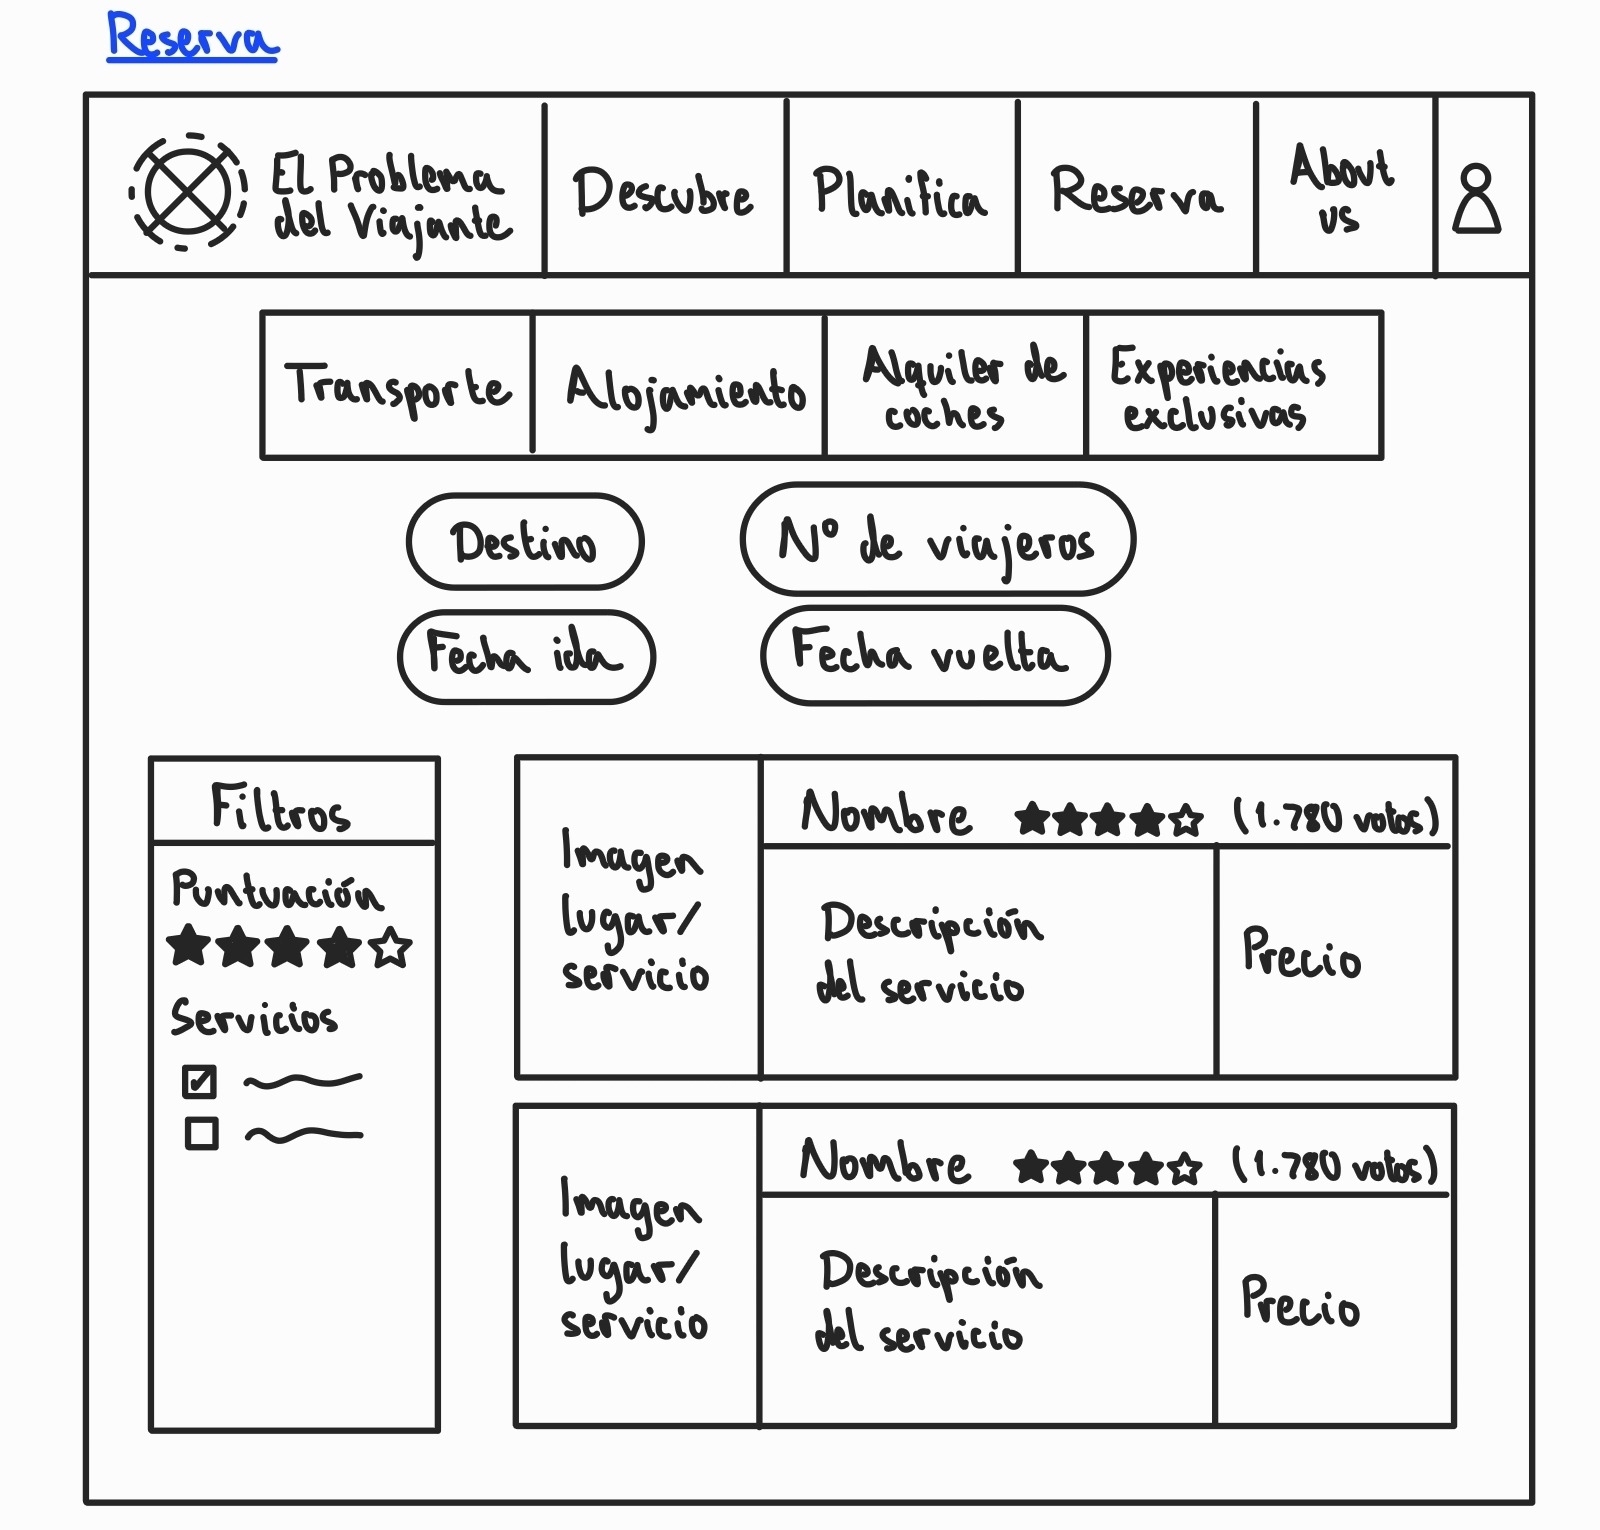 Reserva
El Problema
del Viajante
Descubre
Planifica
Reserva
About
us
Transporte
Alojamiento
Alquiler de
coches
Experiencias
exclusivas
Destino
Nº de viajeros
Fecha ida
Fecha vuelta
Filtros
Puntuación
Servicios
Imagen
lugar/
servicio
Nombre
(1.780 votos)
Descripción
del servicio
Precio
Imagen
lugar/
servicio
Nombre
(1.780 votos)
Descripción
del servicio
Precio